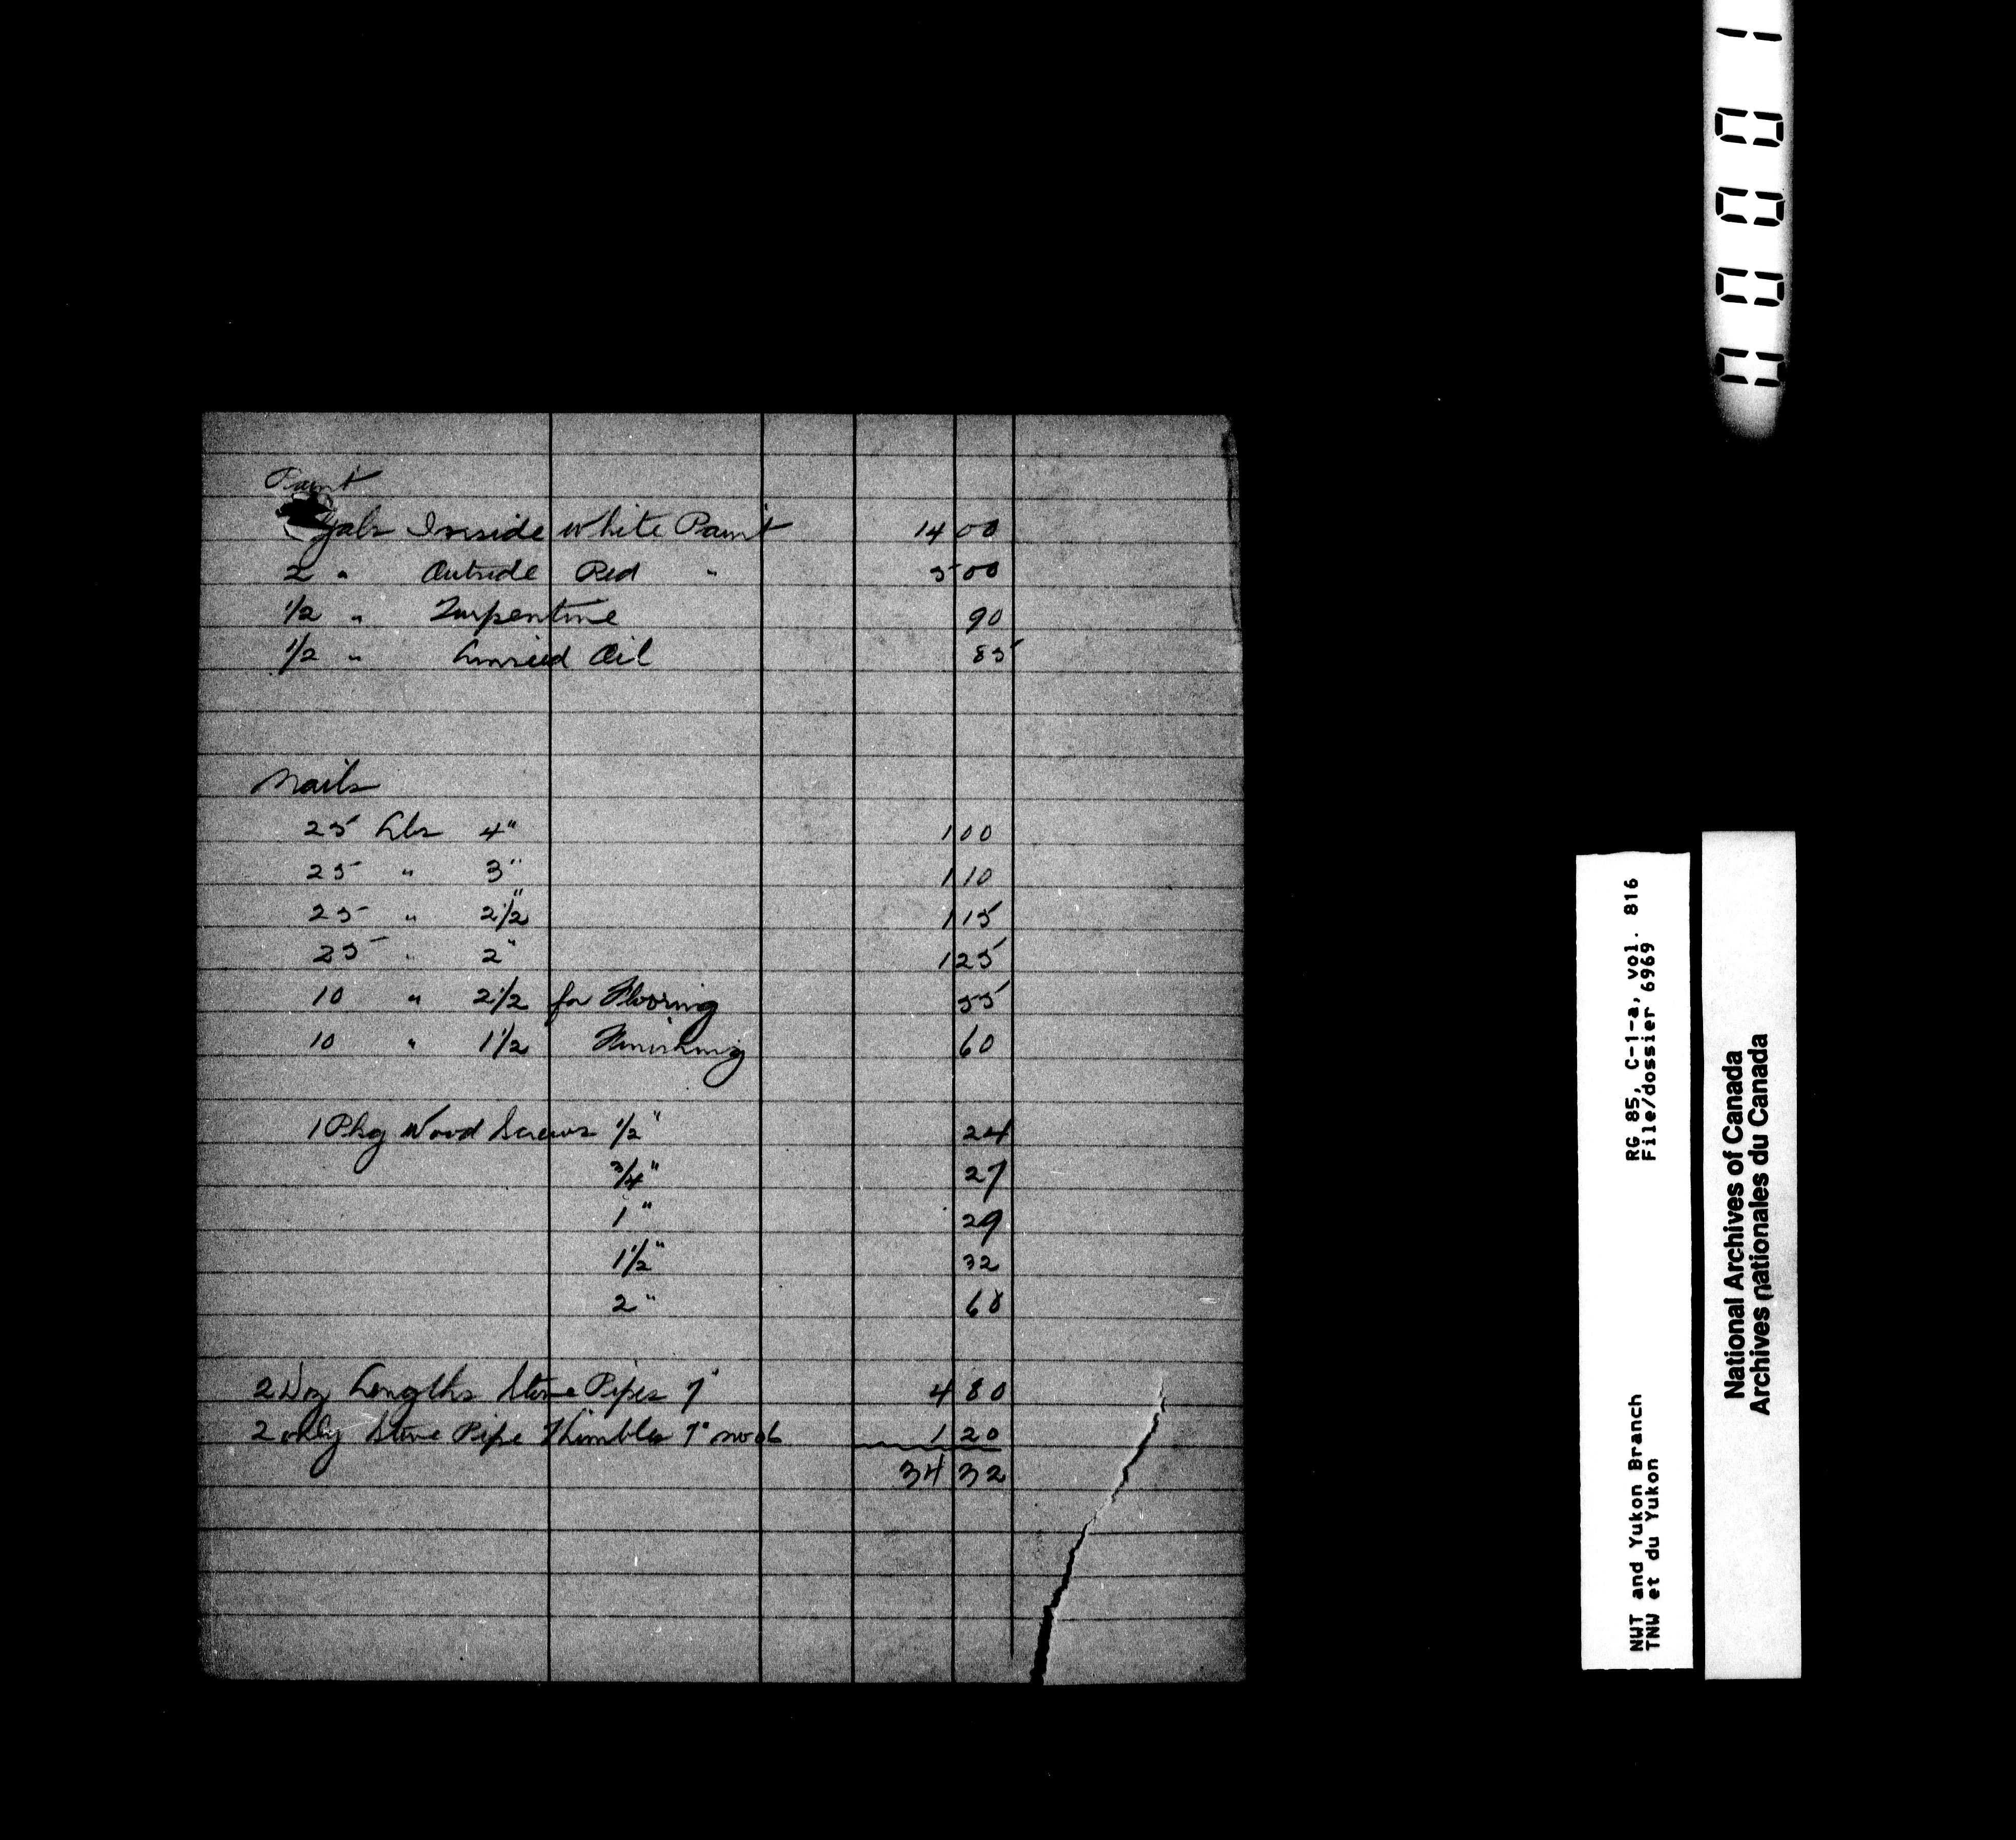 Paint
Gals Inside White Paint 14 00
2 " Outside Red " 5 00
1/2 " Turpentine 90
1/2 " Linseed Oil 85
Nails
25 Lbs 4" 1 00
25 " 3" 1 10
25 " 2 1/2" 1 15
25 " 2" 1 25
10 " 2 1/2 for Flooring 55
10 " 1 1/2 Finishing 60
1 Pkg Wood Screws 1/2" 24
3/4" 27
1" 29
1 1/2" 32
2" 60
2 Doz Lengths Stove Pipes 7" 4 80
2 only Stove Pipe Thimbles 7" 1 20
34 32
NWT and Yukon Branch RG 85, C-1-a, vol. 816
TNW et du Yukon File/dossier 6969
National Archives of Canada
Archives nationales du Canada
00001